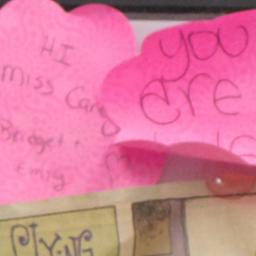 HI
miss Carey
Bridget +
Emily
you
are
PlyiNG